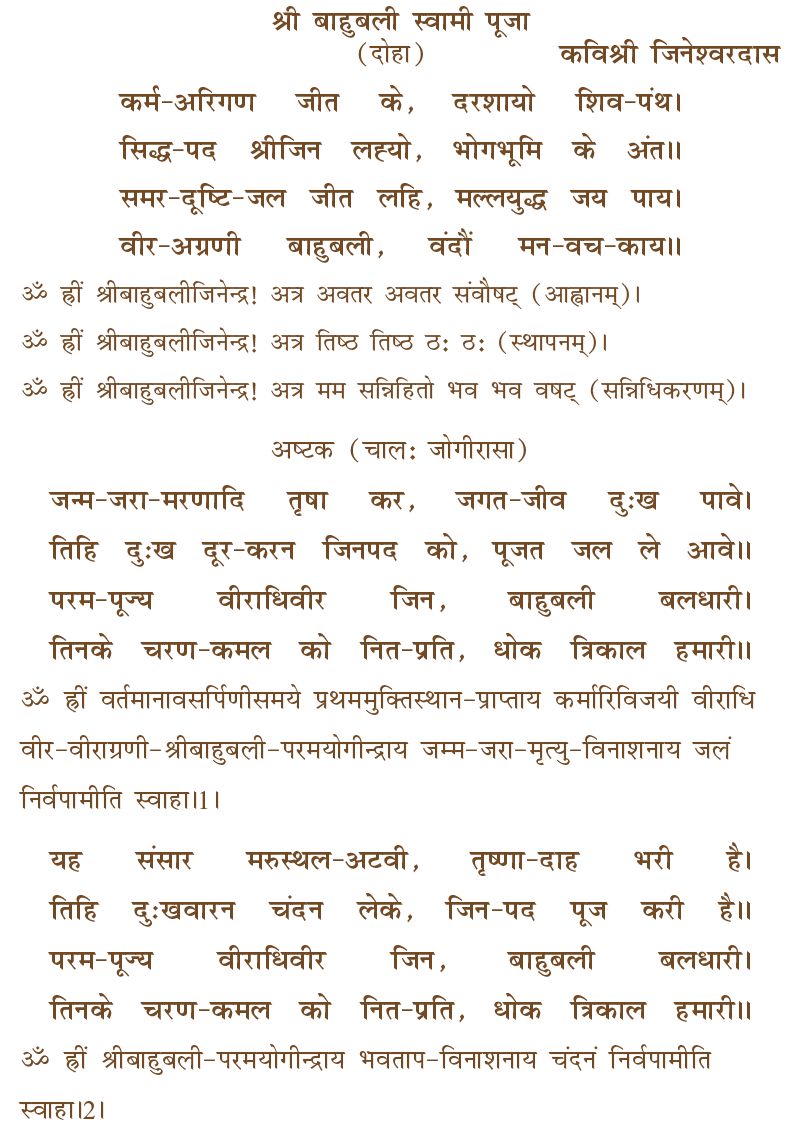 श्री बाहुबली स्वामी पूजा
(दोहा) कविश्री जिनेश्वरदास
कर्म-अरिगण जीत के, दरशायो शिव-पंथ।
सिद्ध-पद श्रीजिन लह्यो, भोगभूमि के अंत॥
समर-दृष्टि-जल जीत लहि, मल्लयुद्ध जय पाय।
वीर-अग्रणी बाहुबली, वंदौं मन-वच-काय॥
ॐ ह्रीं श्रीबाहुबलीजिनेन्द्र! अत्र अवतर अवतर संवौषट् (आह्वानम्)।
ॐ ह्रीं श्रीबाहुबलीजिनेन्द्र! अत्र तिष्ठ तिष्ठ ठ: ठ: (स्थापनम्)।
ॐ ह्रीं श्रीबाहुबलीजिनेन्द्र! अत्र मम सन्निहितो भव भव वषट् (सन्निधिकरणम्)।
अष्टक (चाल: जोगीरासा)
जन्म-जरा-मरणादि तृषा कर, जगत-जीव दुःख पावे।
तिहि दुःख दूर-करन जिनपद को, पूजत जल ले आवे॥
परम-पूज्य वीराधिवीर जिन, बाहुबली बलधारी।
तिनके चरण-कमल को नित-प्रति, धोक त्रिकाल हमारी॥
ॐ ह्रीं वर्तमानावसर्पिणीसमये प्रथममुक्तिस्थान-प्राप्ताय कर्मारिविजयी वीराधि
वीर-वीराग्रणी-श्रीबाहुबली-परमयोगीन्द्राय जम्म-जरा-मृत्यु-विनाशनाय जलं
निर्वपामीति स्वाहा।1।
यह संसार मरुस्थल-अटवी, तृष्णा-दाह भरी है।
तिहि दुःखवारन चंदन लेके, जिन-पद पूज करी है॥
परम-पूज्य वीराधिवीर जिन, बाहुबली बलधारी।
तिनके चरण-कमल को नित-प्रति, धोक त्रिकाल हमारी॥
ॐ ह्रीं श्रीबाहुबली-परमयोगीन्द्राय भवताप-विनाशनाय चंदनं निर्वपामीति
स्वाहा।2।